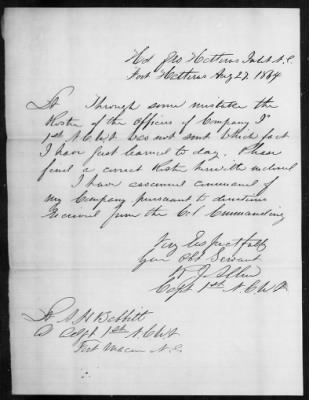 Hd Qrs Hatteras Inlet N.C.
Fort Hatteras Aug 27 1864
Lt Through some mistake the
Roster of the officers of Company I
1st N.C. Vols was not sent which fact
I have just learned to day. Please
find a correct Roster herewith inclosed
I have assumed command of
my Company pursuant to directions
received from the Col Commanding
Very Respectfully
your Obt Servant
Capt 1st N.C.
Lt Babbitt
Adjt 1st N.C.
Fort Macon N.C.